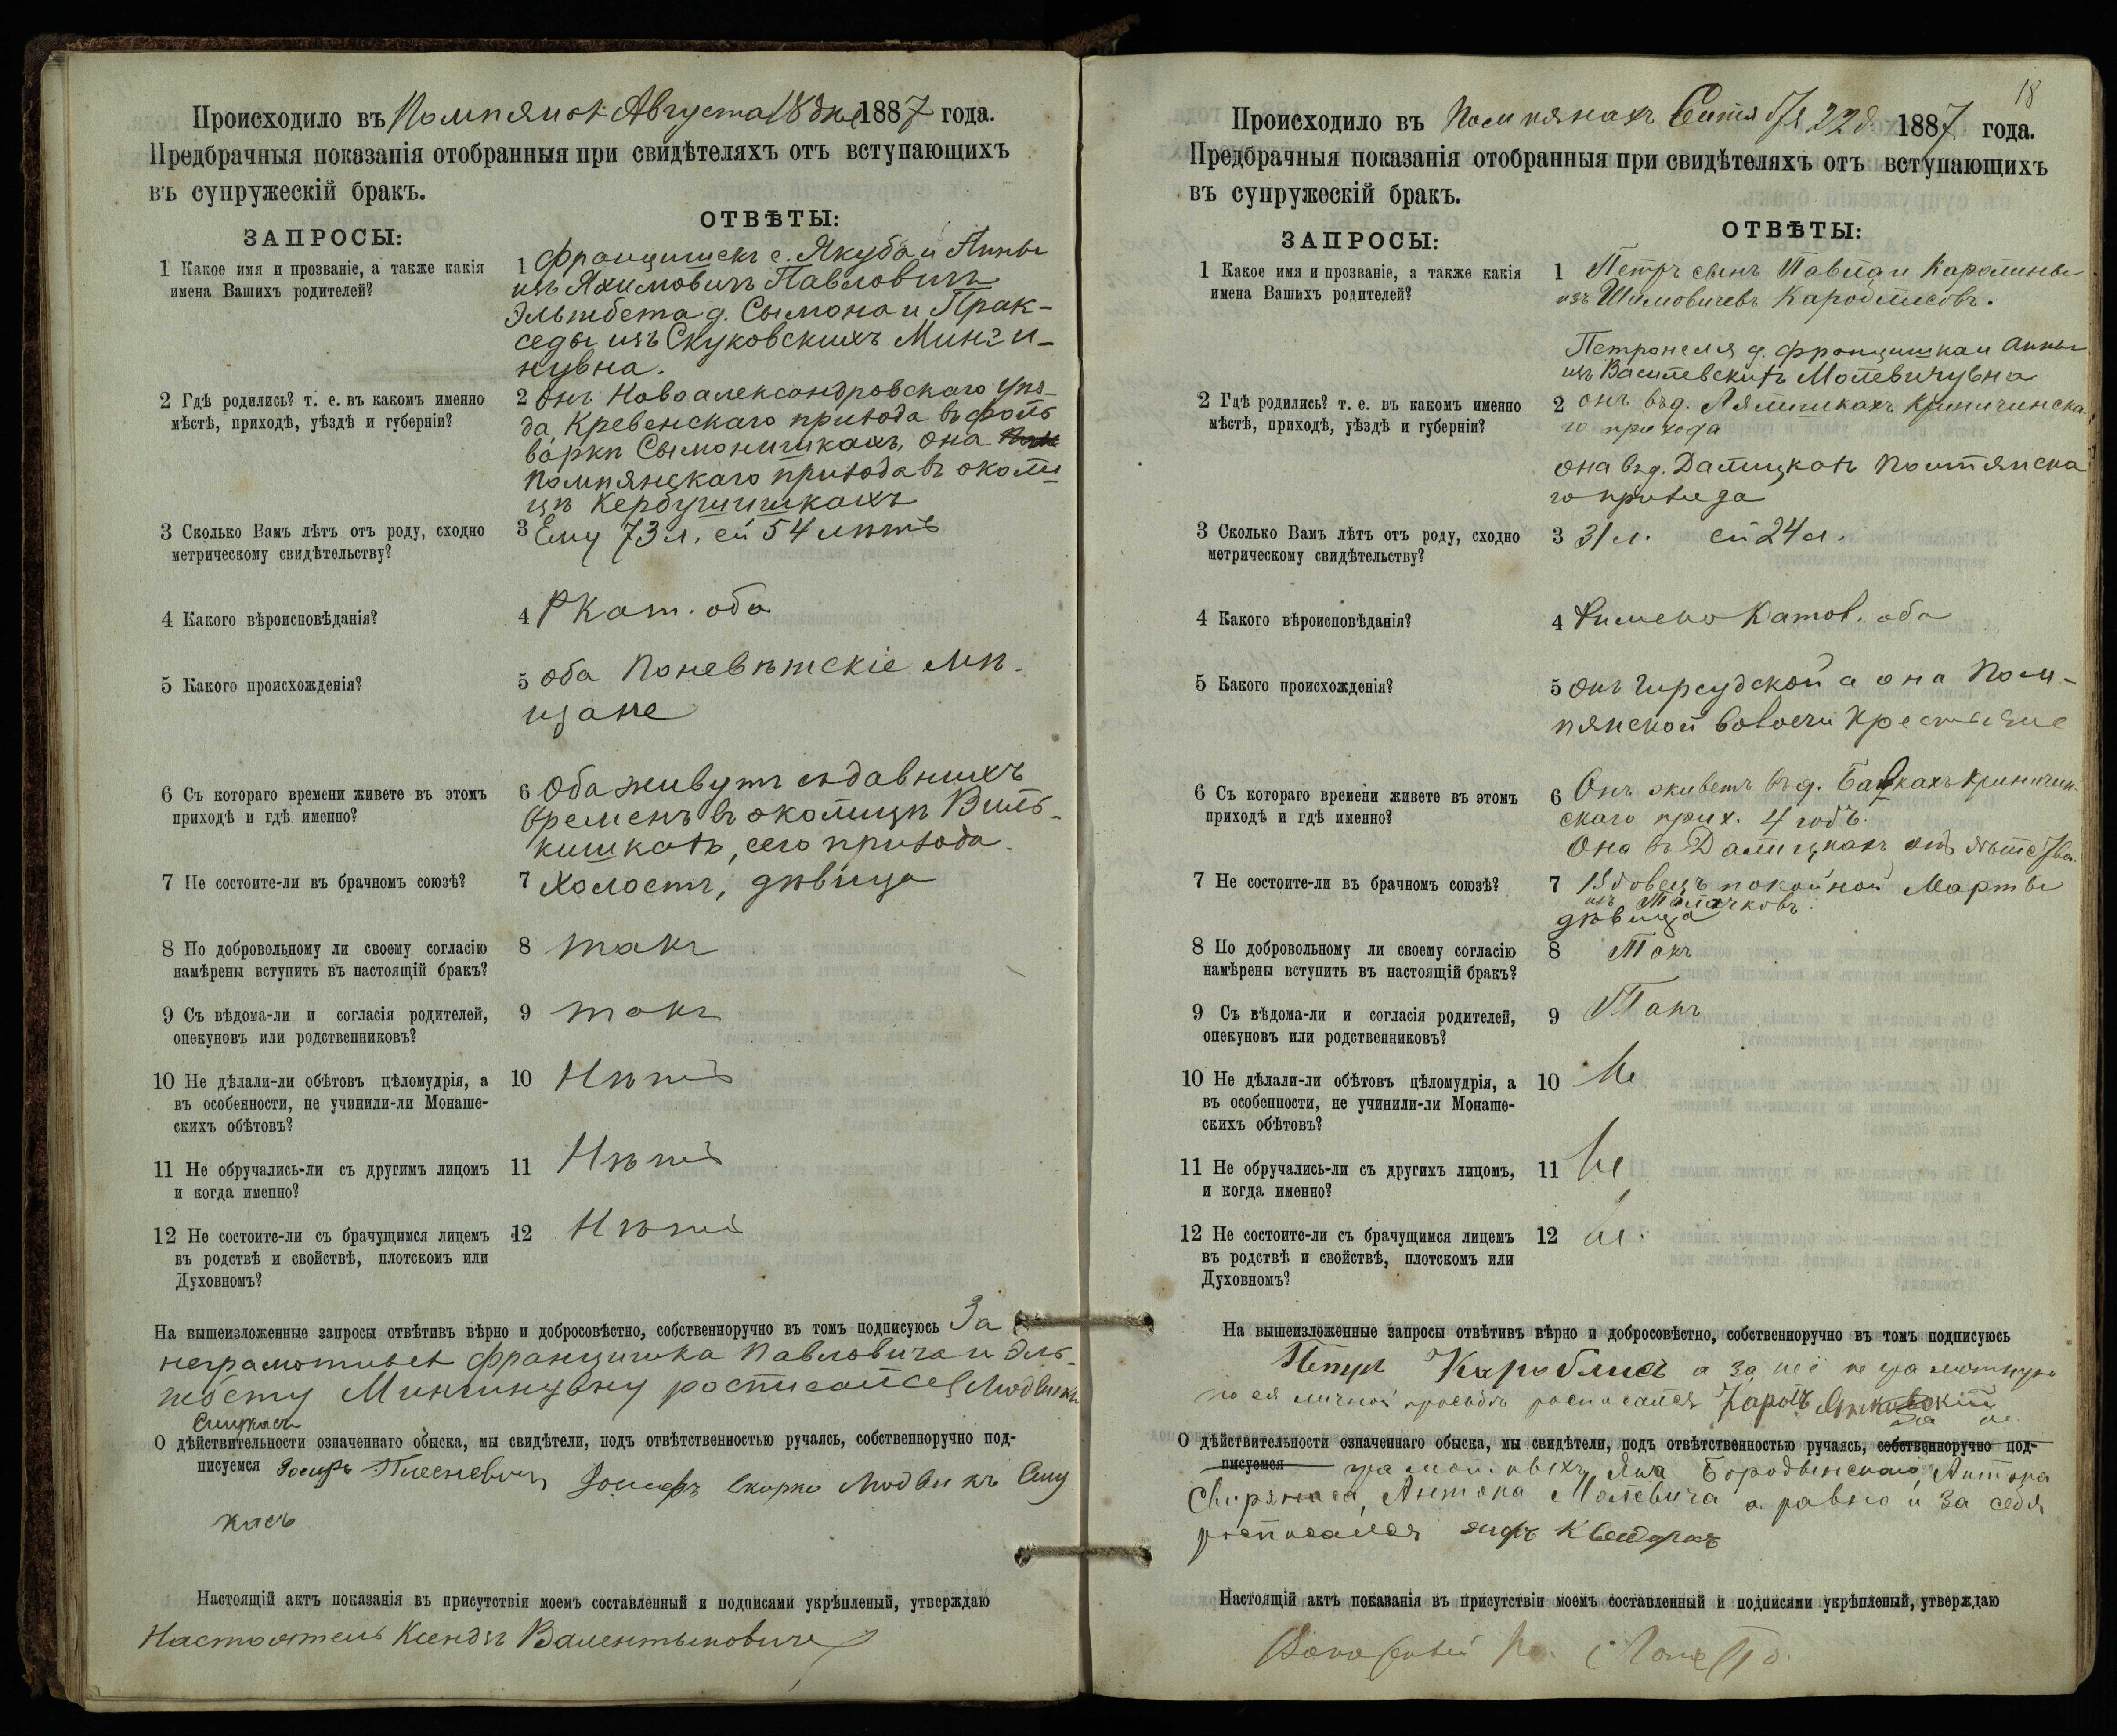 Происходило въ Помпянахъ Августа 18 дня 1887 года.
Предбрачныя показанія отобранныя при свидѣтеляхъ отъ вступающихъ
въ супружескій бракъ.
ЗАПРОСЫ:
ОТВѢТЫ:
1 Какое имя и прозваніе, а также какія
имена Вашихъ родителей?
1 Францишекъ с. Якуба и Анны
изъ Яхимовичъ Павловичъ
Эльжбета д. Сымона и Прак-
седы изъ Скуковскихъ Минги-
нувна.
2 Гдѣ родились? т. е. въ какомъ именно
мѣстѣ, приходѣ, уѣздѣ и губерніи?
2 Онъ Новоалександровскаго уѣз-
да Кревенскаго прихода въ фоль
варкѣ Сымонишкахъ, она
Помпянскаго прихода въ околи
цѣ Кербушишкахъ
3 Сколько Вамъ лѣтъ отъ роду, сходно
метрическому свидѣтельству?
3 Ему 73 л. ей 54 лѣтъ
4 Какого вѣроисповѣданія?
4 Р Кат. оба
5 Какого происхожденія?
5 оба Поневѣжскіе мѣ-
щане
6 Съ котораго времени живете въ этомъ
приходѣ и гдѣ именно?
6 Оба живутъ съ давнихъ
временъ въ околицѣ Виль-
кишкахъ, сего прихода.
7 Не состоите-ли въ брачномъ союзѣ?
7 Холостъ, дѣвица
8 По добровольному ли своему согласію
намѣрены вступить въ настоящій бракъ?
8 такъ
9 Съ вѣдома-ли и согласія родителей,
опекуновъ или родственниковъ?
9 такъ
10 Не дѣлали-ли обѣтовъ цѣломудрія, а
въ особенности, не учинили-ли Монаше-
скихъ обѣтовъ?
10 Нѣтъ
11 Не обручались-ли съ другимъ лицомъ
и когда именно?
11 Нѣтъ
12 Не состоите-ли съ брачущимся лицемъ
въ родствѣ и свойствѣ, плотскомъ или
Духовномъ?
12 Нѣтъ
На вышеизложенные запросы отвѣтивъ вѣрно и добросовѣстно, собственноручно въ томъ подписуюсь За
неграмотныхъ Францишка Павловича и Эль-
жбету Мингинувну росписался Людвикъ
О дѣйствительности означеннаго обыска, мы свидѣтели, подъ отвѣтственностью ручаясь, собственноручно под-
писуемся Іосифъ Іосифъ Скорко Людвикъ
Настоящій актъ показанія въ присутствіи моемъ составленный и подписями укрѣпленый, утверждаю
Настоятель Ксендзъ Валентыновичъ
18
Происходило въ Помпянахъ Сентября 22 д. 1887 года.
Предбрачныя показанія отобранныя при свидѣтеляхъ отъ вступающихъ
въ супружескій бракъ.
ЗАПРОСЫ:
ОТВѢТЫ:
1 Какое имя и прозваніе, а также какія
имена Вашихъ родителей?
1 Петръ сынъ Павла и Каролины
изъ Шимовичевъ Кароблисовъ.
Петронеля д. Францишка и Анны
изъ Василевскихъ Молевичувна
2 Гдѣ родились? т. е. въ какомъ именно
мѣстѣ, приходѣ, уѣздѣ и губерніи?
2 онъ въ д. Криничинска
го прихода
она въ д. Далицкахъ Помпянска
го прихода
3 Сколько Вамъ лѣтъ отъ роду, сходно
метрическому свидѣтельству?
3 31 л. ей 24 л.
4 Какого вѣроисповѣданія?
4 Римско Катол. оба
5 Какого происхожденія?
5 Онъ Гирсудской а она Пом-
пянской волости крестьяне
6 Съ котораго времени живете въ этомъ
приходѣ и гдѣ именно?
6 Онъ живетъ въ д. Криничин-
скаго прих. 4 годъ.
Она въ Далицкахъ отъ
7 Не состоите-ли въ брачномъ союзѣ?
7 Вдовецъ покойной Марты
изъ
дѣвица
8 По добровольному ли своему согласію
намѣрены вступить въ настоящій бракъ?
8 Такъ
9 Съ вѣдома-ли и согласія родителей,
опекуновъ или родственниковъ?
9 Такъ
10 Не дѣлали-ли обѣтовъ цѣломудрія, а
въ особенности, не учинили-ли Монаше-
скихъ обѣтовъ?
10 Не
11 Не обручались-ли съ другимъ лицомъ,
и когда именно?
11 Не
12 Не состоите-ли съ брачущимся лицемъ
въ родствѣ и свойствѣ, плотскомъ или
Духовномъ?
12 Не
На вышеизложенные запросы отвѣтивъ вѣрно и добросовѣстно, собственноручно въ томъ подписуюсь
Петръ Кароблисъ а за неё не грамотную
по ея личной просьбѣ росписался Кароль
О дѣйствительности означеннаго обыска, мы свидѣтели, подъ отвѣтственностью ручаясь, собственноручно под-
писуемся грамотныхъ, Яна Антона
Антона Молевича а равно и за себя
росписался
Настоящій актъ показанія въ присутствіи моемъ составленный и подписями укрѣпленый, утверждаю